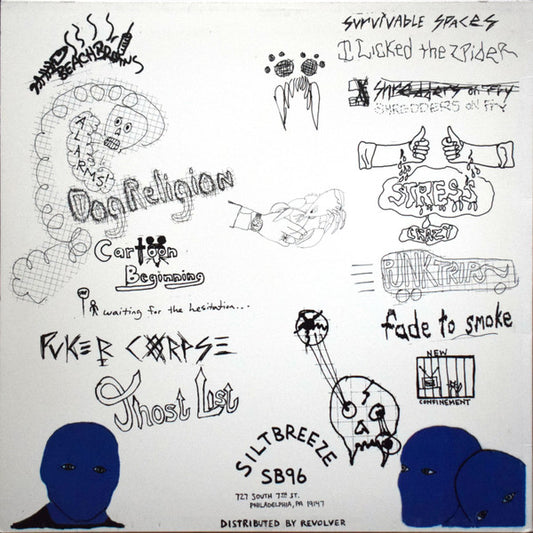 BEACHBROWNS
ALARMS!
Dog Religion
Cartoon
Beginning
waiting for the hesitation...
PUKER CORPSE
Ghost List
survivable spaces
I Licked the Spider
Shredders on Fry
SHREDDERS ON FRY
STRESS
CRAZY
PUNK TRIPS
fade to smoke
NEW
CONFINEMENT
SILTBREEZE
SB96
727 SOUTH 7TH ST.
PHILADELPHIA, PA 19147
DISTRIBUTED BY REVOLVER